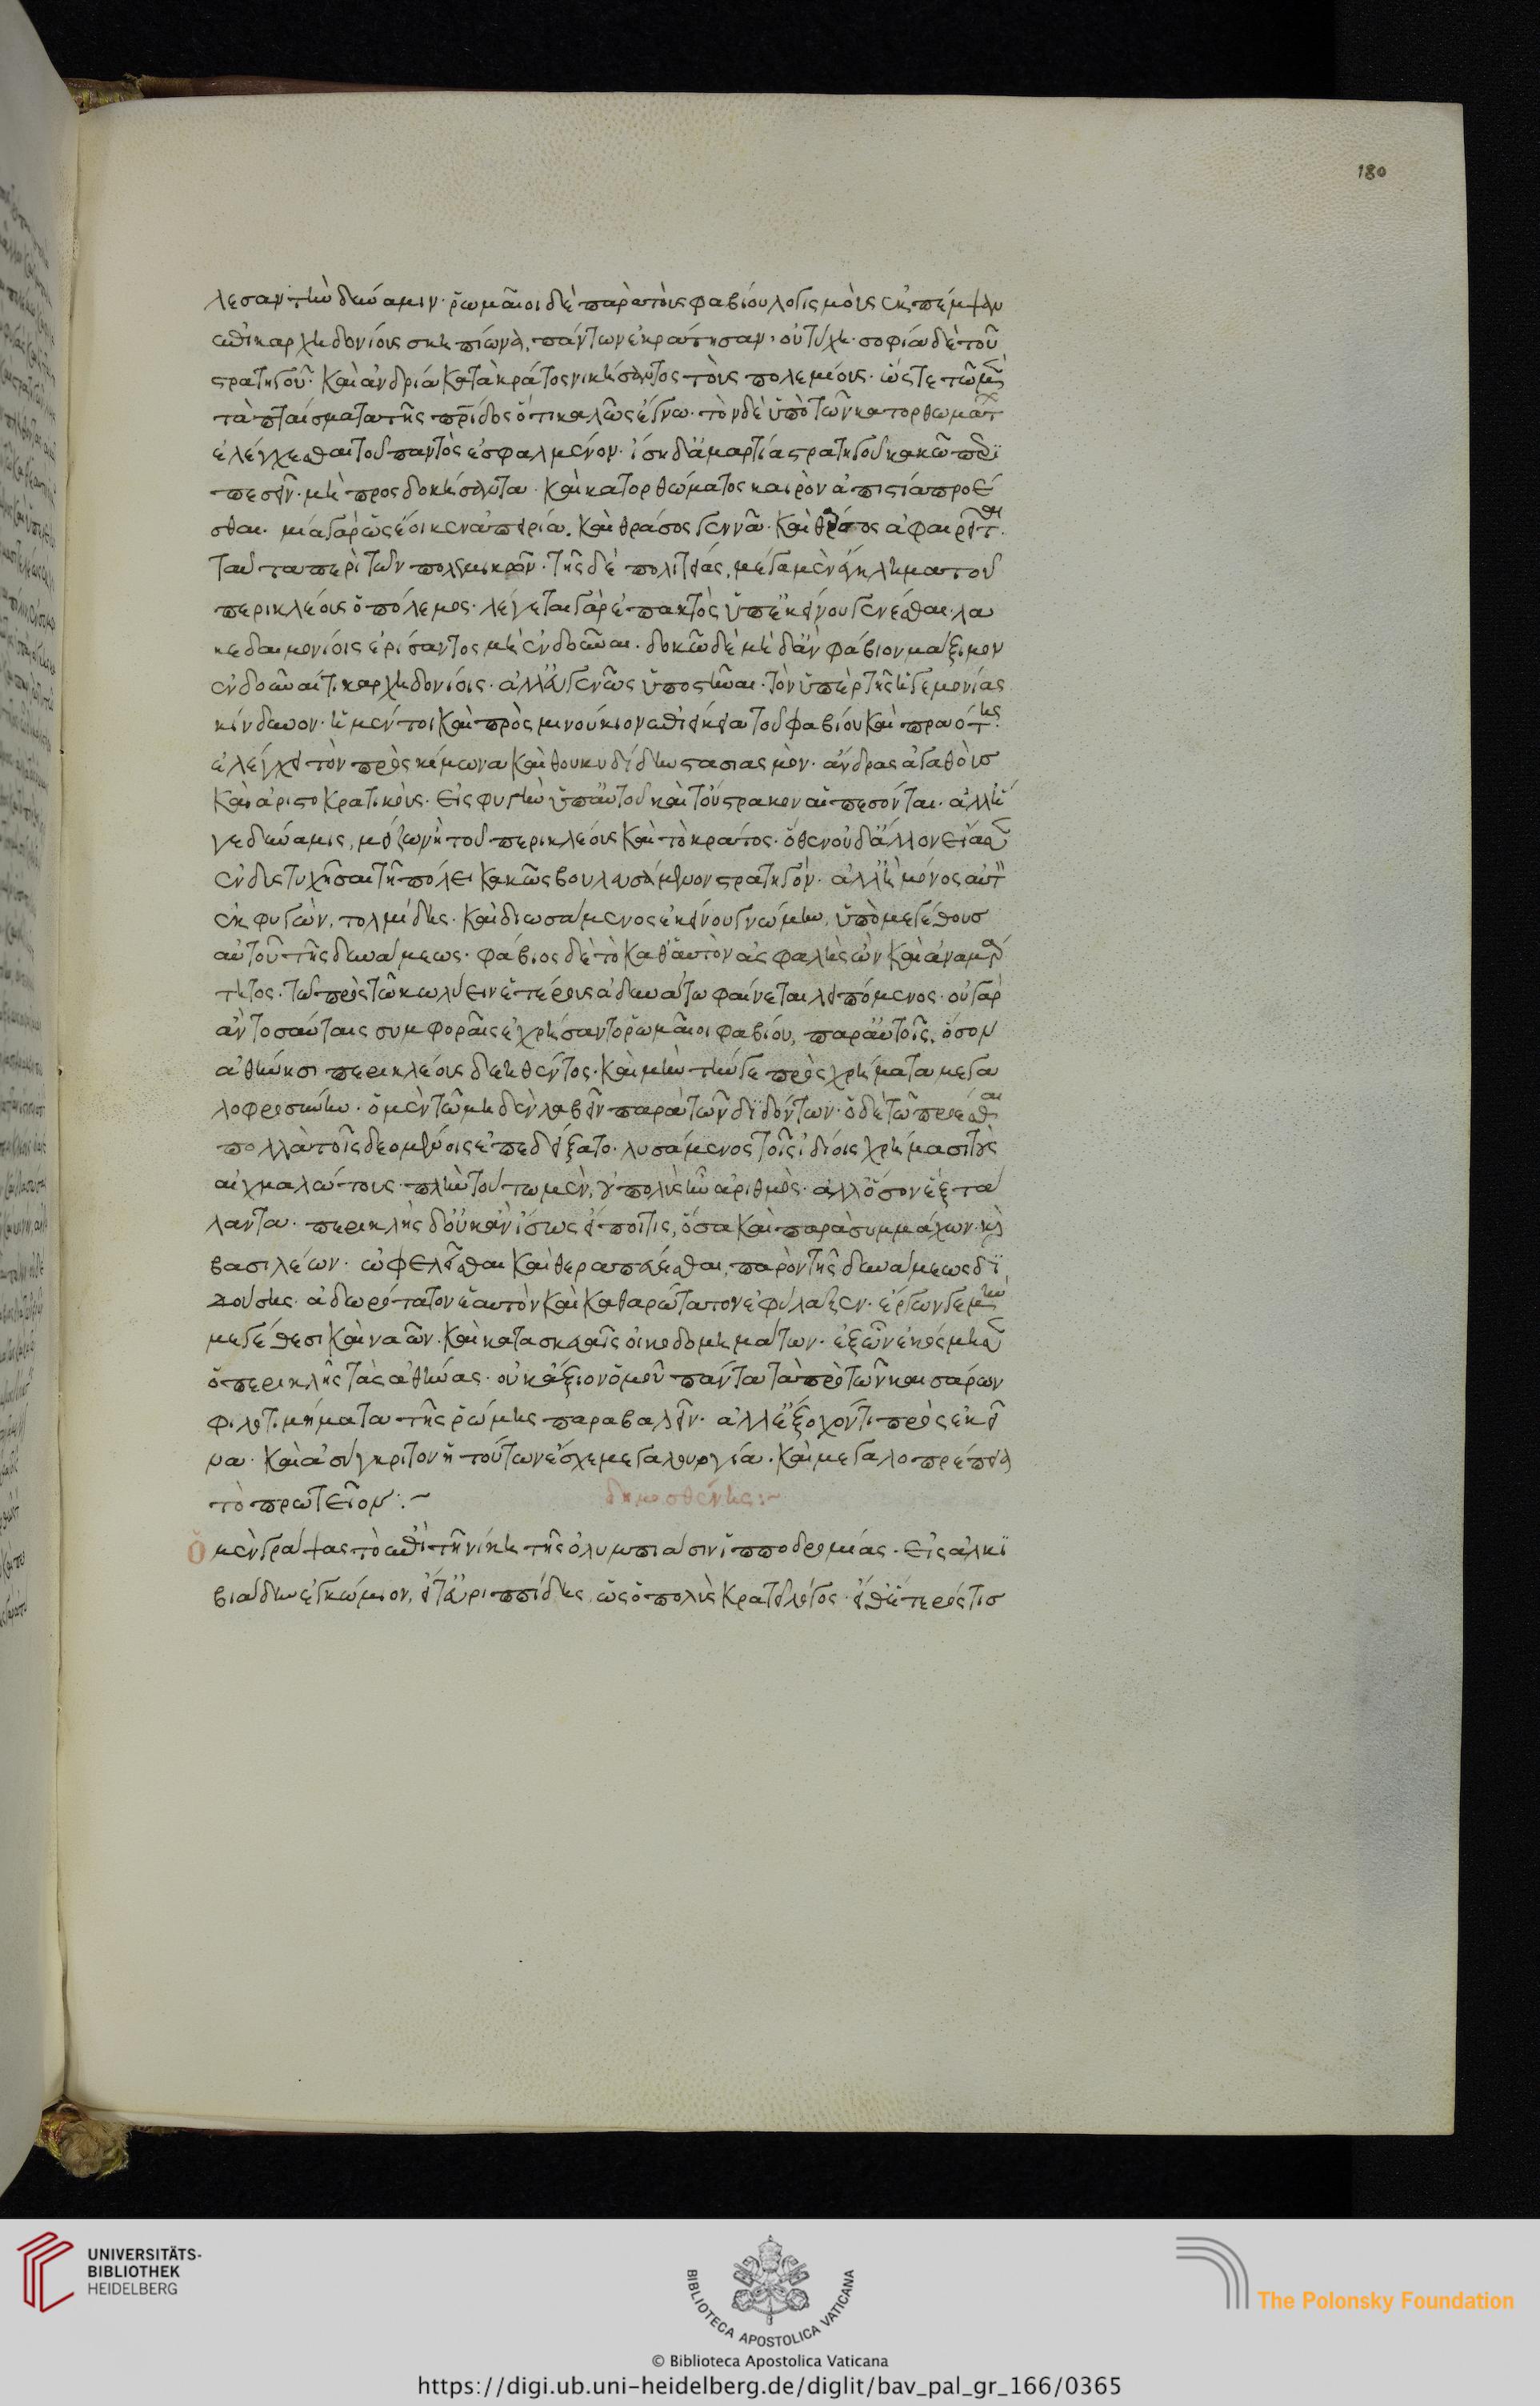 180
λεσαν τὴν δύναμιν· ῥωμαῖοι δὲ παρὰ τοὺς φαβίου λογισμοὺς ἐκπέμψαν
ἐπὶ καρχηδονίους σκηπίωνα, πάντων ἐκράτησαν· οὐ τύχη· σοφία δὲ τοῦ
στρατηγοῦ· καὶ ἀνδρία κατακράτος νικήσαντος τοὺς πολεμίους· ὥστε τῶ μὲν
τὰ πταίσματα τῆς πρίδος ὅτι καλῶς ἔγνω· τὸν δὲ ὑπὸ τῶν κατορθωμάτ
ἐλέγχεσθαι τοῦ παντὸς ἐσφαλμένον· ἴση δ' ἁμαρτία στρατηγοῦ κακῶ περι
πεσεῖν· μὴ προσδοκήσαντα· καὶ κατορθώματος καιρὸν ἀπιστία προέ
σθαι· μία γὰρ ὡς ἔοικεν ἀπειρία. καὶ θράσος γεννᾶ· καὶ θράσος ἀφαιρεῖτ
ταῦτα περὶ τῶν πολεμικῶν· τῆς δὲ πολιτείας, μέγα μὲν ἔγκλημα τοῦ
περικλέους ὁ πόλεμος· λέγεται γὰρ ἐπακτὸς ὑπ' ἐκείνου γενέσθαι· λα
κεδαιμονίοις ἐρίσαντος μὴ ἐνδοῦναι· δοκῶ δὲ μηδ' ἂν φάβιον μάξιμον
ἐνδοῦναί τι καρχηδονίοις· ἀλλ' εὐγενῶς ὑποστῆναι· τὸν ὑπὲρ τῆς ἡγεμονίας
κίνδυνον· ἡ μέντοι καὶ πρὸς μινούκιον ἐπιείκεια τοῦ φαβίου καὶ πραότης
ἐλέγχει τὸν πρὸς κίμωνα καὶ θουκυδίδην στασιασμόν· ἄνδρας ἀγαθοὺσ
καὶ ἀριστοκρατικούς· εἰς φυγὴν ὑπ' αὐτοῦ καὶ τοὔστρακον αἱπεσόνται· ἀλλ' ἥ
γε δύναμις, μείζων ἡ τοῦ περικλέους καὶ τὸ κράτος· ὅθεν οὐδ' ἄλλον εἴασεν
ἐνδυστυχῆσαι τῆ πόλει κακῶς βουλευσάμενον στρατηγόν· ἀλλ' ἢ μόνος αὐτ
ἐκφυγὼν, τολμίδης· καὶ διωσάμενος ἐκείνου γνώμην, ὑπὸ μεγέθουσ
αὐτοῦ τῆς δυνάμεως· φάβιος δὲ τὸ καθ' αὑτὸν ἀσφαλὴς ὢν καὶ ἀναμάρ
τητος· τῶ πρὸς τῶ κωλύειν ἑτέρους ἀδυνάτω φαίνεται λειπόμενος· οὐ γὰρ
ἂν τοσαύταις συμφοραῖς ἐχρήσαντο ῥωμαῖοι φαβίου, παρ' αὐτοῖς, ὅσον
ἀθήνησι περικλέους δυηθέντος· καὶ μὴν τήν γε πρὸς χρήματα μεγα
λοφροσύνην· ὁ μὲν τῶ μηδὲν λαβεῖν παρὰ τῶν διδόντων· ὁ δὲ τῶ προέσθαι
πολλὰ τοῖς δεομένοις ἐπεδείξατο· λυσάμενος τοῖς ἰδίοις χρήμασι τοὺς
αἰχμαλώτους· πλὴν τούτω μὲν, οὐ πολὺς ἦν ἀριθμός· ἀλλ' ὅσον ἓξ τά
λαντα· περικλῆς δ' οὐκ ἂν ἴσως εἴποι τις, ὅσα καὶ παρὰ συμμάχων· καὶ
βασιλέων· ὠφελεῖσθαι καὶ θεραπεύεσθαι, παρὸν τῆς δυνάμεως δι
δούσης· ἀδωρότατον ἑαυτὸν καὶ καθαρώτατον ἐφύλαξεν· ἔργων γε μὴν
μεγέθεσι καὶ ναῶν· καὶ κατασκευαῖς οἰκοδομημάτων· ἐξ ὧν ἐκόσμησεν
ὁ περικλῆς τὰς ἀθήνας· οὐκ ἄξιον ὁμοῦ πάντα τὰ πρὸ τῶν καισάρων
φιλοτιμήματα τῆς ῥώμης παραβαλεῖν· ἀλλ' ἔξοχόν τι πρὸς ἐκεῖ
να· καὶ ἀσύγκριτον ἡ τούτων ἔσχε μεγαλουργία· καὶ μεγαλοπρέπεια
τὸ πρωτεῖον :~
δημοσθένης :~
Ὁ μὲν γράψας τὸ ἐπὶ τῆ νίκη τῆς ὀλυμπίασιν ἱπποδρομίας· εἰς ἀλκι
βιάδην ἐγκώμιον, εἴτ' εὐριππίδης, ὡς ὁ πολὺς κρατεῖ λόγος· εἴθ' ἕτερός τισ
UNIVERSITÄTS-
BIBLIOTHEK
HEIDELBERG
BIBLIOTECA APOSTOLICA VATICANA
The Polonsky Foundation
© Biblioteca Apostolica Vaticana
https://digi.ub.uni-heidelberg.de/diglit/bav_pal_gr_166/0365